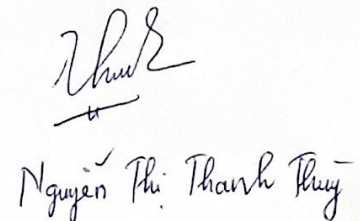 Nguyễn Thị Thanh Thuý